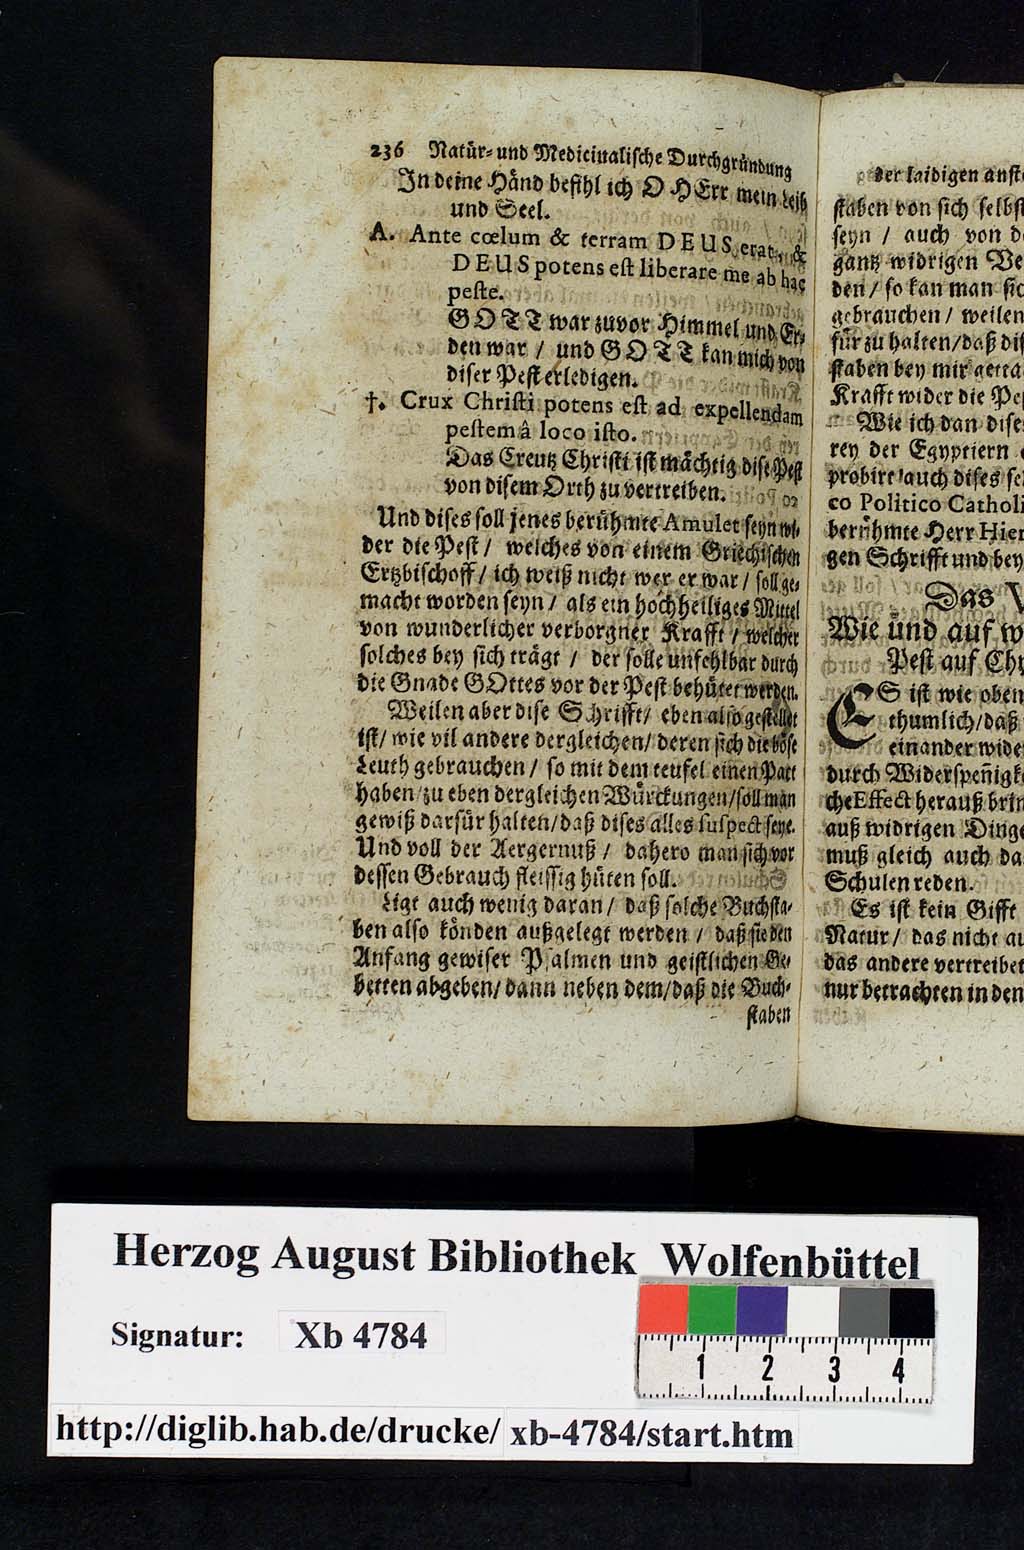 236 Natür- und Medicinalische Durchgründung
In deine Händ befihl ich O HErr mein Leib
und Seel.
A. Ante cœlum & terram DEUS erat, &
DEUS potens est liberare me ab hac
peste.
GOTT war zuvor Himmel und Er-
den war / und GOTT kan mich von
diser Pest erledigen.
†. Crux Christi potens est ad expellendam
pestem â loco isto.
Das Creutz Christi ist mächtig dise Pest
von disem Orth zu vertreiben.
Und dises soll jenes berühmte Amulet seyn wi-
der die Pest / welches von einem Griechischen
Ertzbischoff / ich weiß nicht wer er war / soll ge-
macht worden seyn / als ein hochheiliges Mittel
von wunderlicher verborgner Krafft / welcher
solches bey sich trägt / der solle unfehlbar durch
die Gnade GOttes vor der Pest behütet werden.
Weilen aber dise Schrifft / eben also gestellet
ist / wie vil andere dergleichen / deren sich die böse
Leuth gebrauchen / so mit dem teufel einen Patt
haben / zu eben dergleichen Würckungen / soll man
gewiß darfür halten / daß dises alles suspect seye.
Und voll der Aergernuß / dahero man sich vor
dessen Gebrauch fleissig hüten soll.
Ligt auch wenig daran / daß solche Buchsta-
ben also könden außgelegt werden / daß sie den
Anfang gewiser Psalmen und geistlichen Ge-
betten abgeben / dann neben dem / daß die Buch-
staben
der laidigen
staben von sich selbst
seyn / auch von
gantz widrigen
den / so kan man sic
gebrauchen / weilen
für zu halten / daß
staben bey mir
Krafft wider die
Wie ich dan dises
rey der Egyptiern
probirt auch dises
co Politico Catholi
berühmte Herr Hier
gen Schrifft und bey
Das V
Wie und auf w
Pest auf
ES ist wie oben
thumlich / daß
einander wide
durch Widerspeñigk
che Effect herauß brin
auß widrigen Dinge
muß gleich auch da
Schulen reden.
Es ist kein Gifft
Natur / das nicht au
das andere vertreibet
nur betrachten in den
Herzog August Bibliothek Wolfenbüttel
Signatur: Xb 4784
1 2 3 4
http://diglib.hab.de/drucke/ xb-4784/start.htm